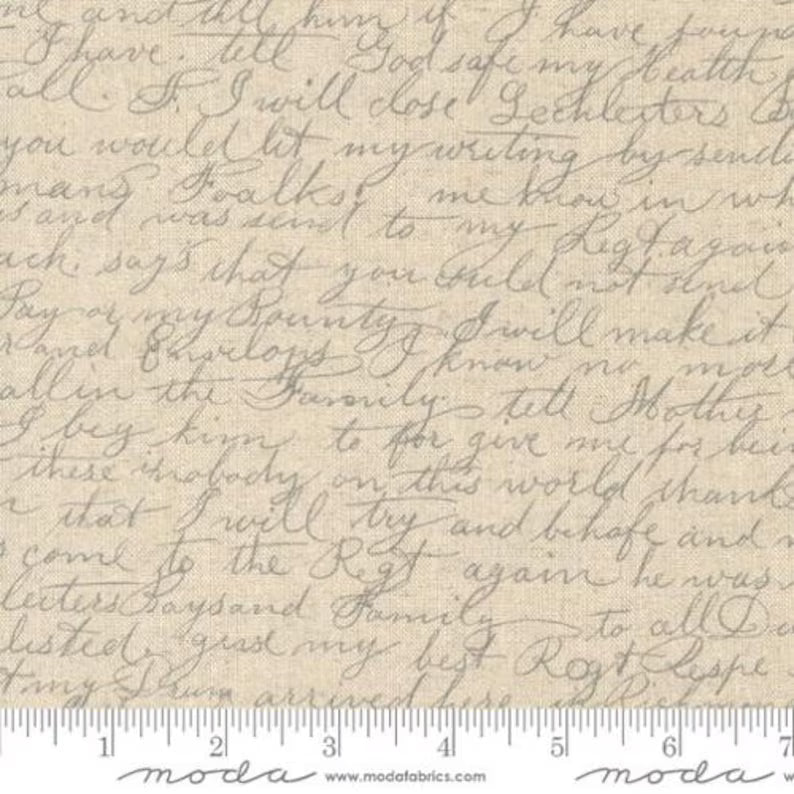 and tell him if I have found
I have. tell God safe my Health
all. I will close Lechleiters
you would let my writing by send
mans Foalks. me know in wh
us and was send to my Regt again
ach. says that you could not send
Pay or my Bounty, I will make it
r and Envelops I know no more
all in the Family tell Mother
I beg him to for give me for bein
these is nobody on this world thank
that I will try and behafe and
come to the Regt again he was
leiters Says and Family to all
listed. give my best Regt Respe
t my Drum arrived here in Richmon
1 2 3 4 5 6 7
moda www.modafabrics.com moda w